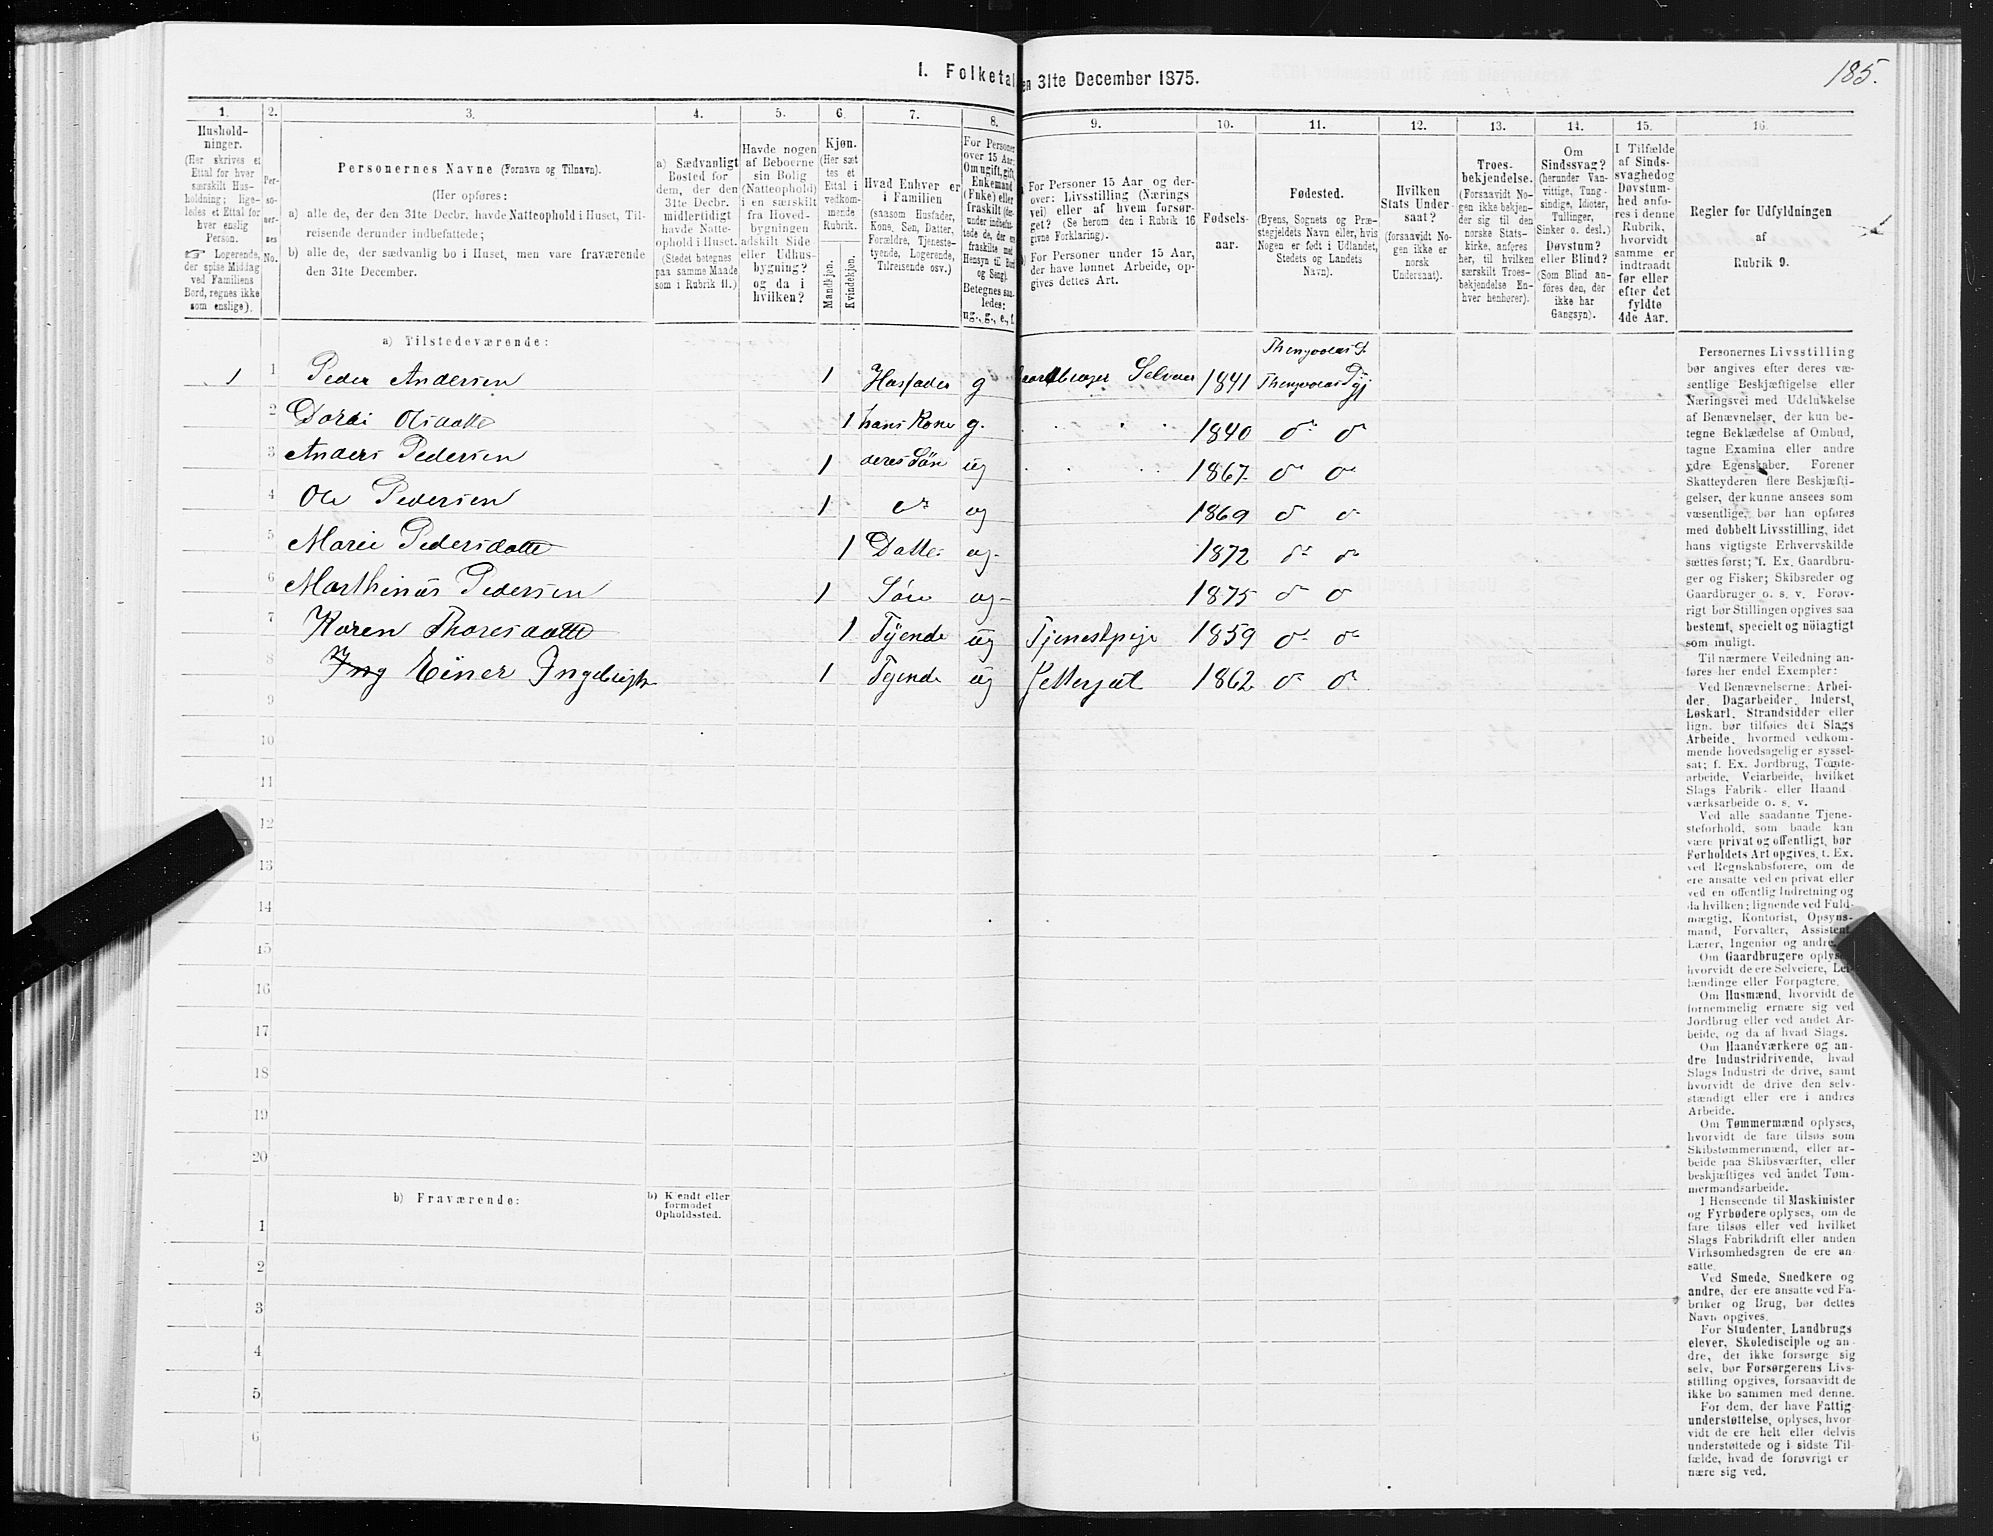 I. Folketal
en 31te December 1875.
185.
1.
2.
3.
4.
5.
6.
7.
8.
9.
10.
11.
12.
13.
14.
15.
16.
Hushold-
ninger.
(Her skrives et
Ettal for hver
særskilt Hus-
holdning; lige-
ledes et Ettal for
hver enslig
Person.
☞ Logerende,
der spise Middag
ved Familiens
Bord, regnes ikke
som enslige).
Per-
so-
ner-
nes
No.
Personernes Navne (Fornavn og Tilnavn).
(Her opføres:
a) alle de, der den 31te Decbr. havde Natteophold i Huset, Til-
reisende derunder indbefattede;
b) alle de, der sædvanlig bo i Huset, men vare fraværende
den 31te December.
a) Sædvanligt
Bosted for
dem, der den
31te Decbr.
midlertidigt
havde Natte-
ophold i Huset.
(Stedet betegnes
paa samme Maade
som i Rubrik 11.)
Havde nogen
af Beboerne
sin Bolig
(Natteophold)
i en særskilt
fra Hoved-
bygningen
adskilt Side
eller Udhus-
bygning?
og da i
hvilken?
Kjøn.
(Her sæt
tes et
Ettal i
vedkom-
mende
Rubrik.
Mandkjøn.
Kvindekjøn.
Hvad Enhver er
i Familien
(saasom Husfader,
Kone, Søn, Datter,
Forældre, Tjeneste-
tyende, Logerende,
Tilreisende osv.)
For Personer
over 15 Aar:
Om ugift, gift,
Enkemand
(Enke) eller
fraskilt (der-
under indbefat-
tede de, der er
fraskilte med
Hensyn til Bord
og Seng).
Betegnes saa-
ledes:
ug., g., e., f.
For Personer 15 Aar og der-
over: Livsstilling (Nærings
vei) eller af hvem forsør-
get? (Se herom den i Rubrik 16
givne Forklaring).
For Personer under 15 Aar,
der have lønnet Arbeide, op-
gives dettes Art.
Fødsels-
aar.
Fødested.
(Byens, Sognets og Præ-
stegjeldets Navn eller, hvis
Nogen er født i Udlandet,
Stedets og Landets
Navn).
Hvilken
Stats Under-
saat?
(forsaavidt No-
gen ikke er
norsk
Undersaat).
Troes-
bekjendelse.
(Forsaavidt No-
gen ikke bekjen-
der sig til den
norske Stats-
kirke, anføres
her, til hvilken
særskilt Troes-
bekjendelse En-
hver henhører).
Om
Sindssvag?
(herunder Van-
vittige, Tung-
sindige, Idioter,
Tullinger,
Sinker o. desl.)
Døvstum?
eller Blind?
(Som Blind an-
føres den, der
ikke har
Gangsyn).
I Tilfælde
af Sinds-
svaghed og
Døvstum-
hed anfø-
res i denne
Rubrik,
hvorvidt
samme er
indtraadt
før eller
efter det
fyldte
4de Aar.
Regler for Udfyldningen
af
Rubrik 9.
a) Tilstedeværende:
1 1 Peder Andersen 1 Husfader g Gaardbruger Selveier 1841
2 Dordi Olsdatte 1 hans Kone g. 1840 do do
3 Anders Pedersen 1 deres Søn ug 1867 do do
4 Ole Pedersen 1 do ug 1869 do do
5 Marie Pedersdatte 1 Datter ug 1872 do do
6 Marthinus Pedersen 1 Søn ug 1875 do do
7 Karen Thoresdatte 1 Tyende ug Tjenestpige 1859 do do
8 Ing Einer Ingebrigts 1 Tyende ug Gjettergut 1862 do do
9
10
11
12
13
14
15
16
17
18
19
20
b) Fraværende:
b) Kjendt eller
formodet
Opholdssted.
1
2
3
4
5
6
Personernes Livsstilling
bør angives efter deres væ-
sentlige Beskjæftigelse eller
Næringsvei med Udelukkelse
af Benævnelser, der kun be-
tegne Beklædelse af Ombud,
tagne Examina eller andre
ydre Egenskaber. Forener
Skatteyderen flere Beskjæfti-
gelser, der kunne ansees som
væsentlige, bør han opføres
med dobbelt Livsstilling, idet
hans vigtigste Erhvervskilde
sættes først; f. Ex. Gaardbru-
ger og Fisker; Skibsreder og
Gaardbruger o. s. v. Forøv-
rigt bør Stillingen opgives saa
bestemt, specielt og nöiagtigt
som muligt.
Til nærmere Veiledning an-
føres her endel Exempler:
Ved Benævnelserne: Arbei-
der, Dagarbeider, Inderst,
Løskarl, Strandsidder eller
lign. bør tilføies det Slags
Arbeide, hvormed vedkom-
mende hovedsagelig er syssel-
sat; f. Ex. Jordbrug, Tomte-
arbeide, Veiarbeide, hvilket
Slags Fabrik- eller Haand
værksarbeide o. s. v.
Ved alle saadanne Tjene-
steforhold, som baade kan
være privat og offentligt, bør
Forholdets Art opgives, t. Ex.
ved Regnskabsførere, om de
ere ansatte ved en privat eller
ved en offentlig Indretning og
da hvilken; lignende ved Fuld-
mægtig, Kontorist, Opsyns-
mand, Forvalter, Assistent,
Lærer, Ingeniør og andre.
Om Gaardbrugere oplyses,
hvorvidt de ere Selveiere, Lei-
lændinge eller Forpagtere.
Om Husmænd, hvorvidt de
fornemmelig ernære sig ved
Jordbrug eller ved andet Ar-
beide, og da af hvad Slags.
Om Haandværkere og an-
dre Industridrivende, hvad
Slags Industri de drive, samt
hvorvidt de drive den selv-
stændigt eller ere i andres
Arbeide.
Om Tømmermænd oplyses,
hvorvidt de fare tilsøs som
Skibstømmermænd, eller ar-
beide paa Skibsværfter, eller
beskjæftiges ved andet Tøm-
mermandsarbeide.
I Henseende til Maskinister
og Fyrbødere oplyses, om de
fare tilsøs eller ved hvilket
Slags Fabrikdrift eller anden
Virksomhedsgren de ere an-
satte.
Ved Smede, Snedkere og
andre, der ere ansatte ved Fa-
briker og Brug, bør dettes
Navn opgives.
For Studenter, Landbrugs
elever, Skoledisciple og an-
dre, der ikke forsørge sig
selv, bør Forsørgerens Livs-
stilling opgives, forsaavidt de
ikke bo sammen med denne.
For dem, der have Fattig
understøttelse, oplyses, hvor-
vidt de ere helt eller delvis
understøttede og i sidste Til-
fælde, hvad de forøvrigt er
nære sig ved.